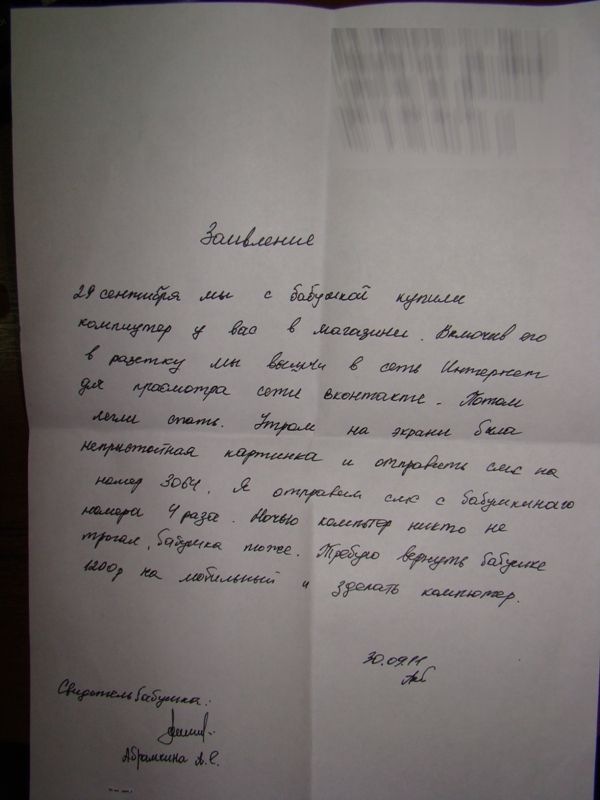 Заявление
29 сентября мы с бабушкой купили
компиутер у вас в магазини. Включив его
в разетку мы вышли в сеть Интернет
для просмотра сети вконтакте. Потом
легли спать. Утром на экрани была
непристойная картинка и отправить смс на
номер 3064. Я отправил смс с бабушкиного
номера 4 раза. Ночью компютор никто не
трогал, бабушка тоже. Требую вернуть бабушке
1200р на мобильный и зделать компютер.
30.09.11
Свидетель бабушка:
Абрамкина А.С.